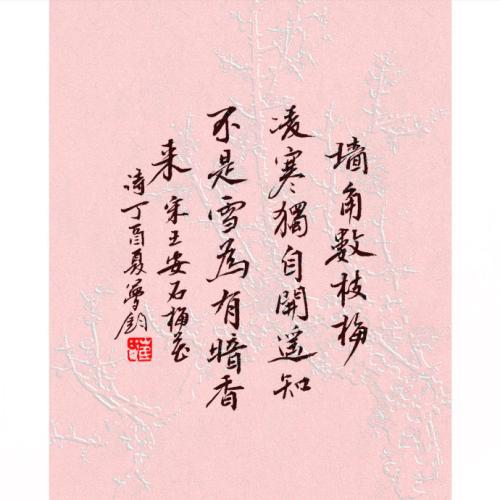 墙角數枝梅
凌寒獨自開遥知
不是雪為有暗香
来 宋王安石梅花
诗丁酉夏夢鈞